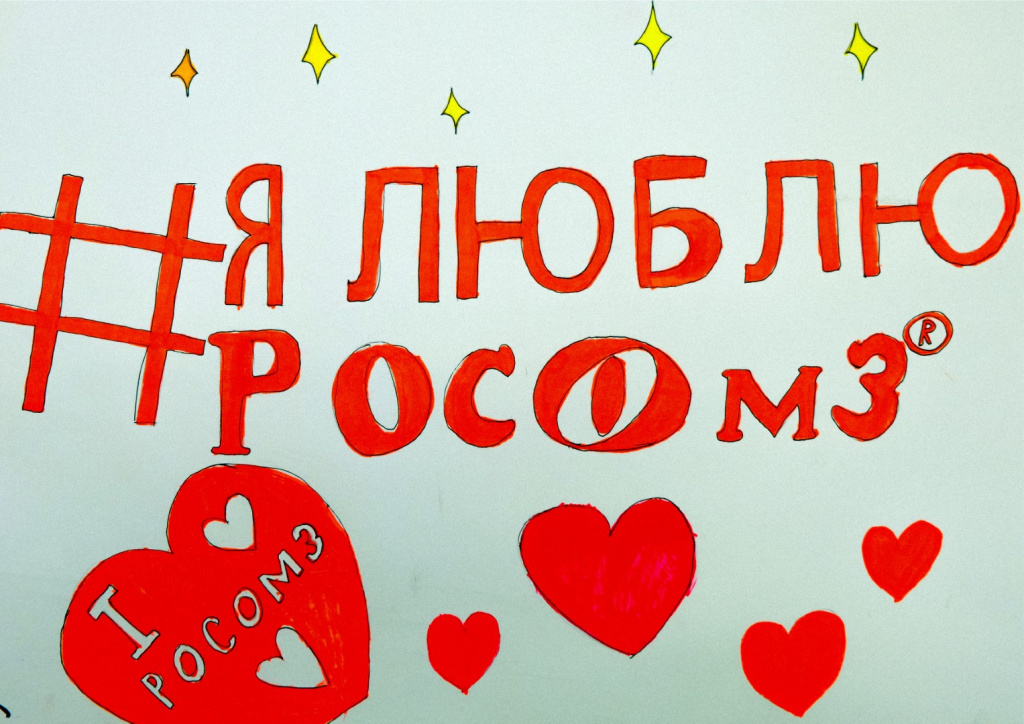 #Я ЛЮБЛЮ
РОСОМЗ®
I
РОСОМЗ